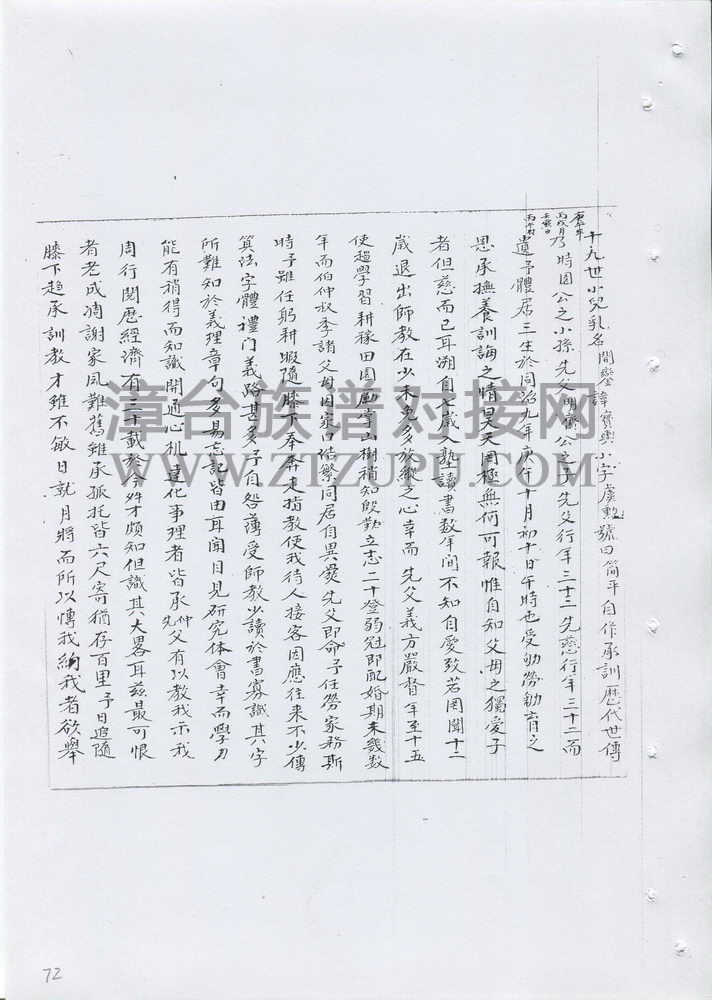 十九世小兒乳名開鑾諱寶興小字虞勲號曰简平自作承訓歷代世傳
庚午年
丙戌月
壬寅日
丙午时
乃時園公之小孫先父明齋公之子先父行年三十三先慈行年三十二而
遺予體居三生於同治九年庚午十月初十日午時也受劬勞勤育之
恩承撫養訓誨之情昊天罔極無何可報惟自知父母之獨愛子
者但慈而已耳溯自七歲入塾讀書数年间不知自愛致若罔聞十二
歲退出師教在少未免多放縱之心幸而先父義方嚴督年至十五
使趨學習耕稼田園勵掌山樹稍知殷勤立志二十登弱冠即配婚期未幾数
年而伯仲叔季諸父母因家口浩繁同居自異爨先父即命予任勞家務斯
時予雖任躬耕暇隨膝下奉奔走指教使我待人接客因應往来不少傳
算法字體禮门義路甚多予自咎薄受師教少讀於書寡識其字
所難知於義理章句多易忘記皆由耳聞目見研究体會幸而學力
能有稍得而知識開通心机達化事理者皆承先仲父有以教我示我
周行閱歷經濟有三十載於今对才頗知但識其大畧耳兹最可恨
者老成凋謝家風難舊雖承孤托皆六尺寄猶存百里予日追隨
膝下趨承訓教才雖不敏日就月將而所以愽我約我者欲舉
漳台族谱对接网
WWW.ZTZUPU.COM
72